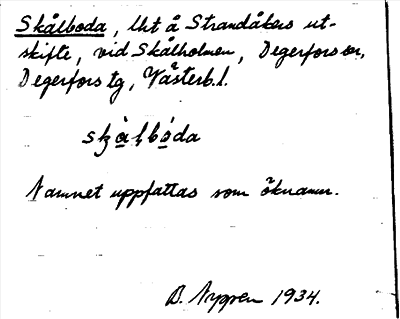 Skålboda, lht å Strandåkers ut-
skifte, vid Skålholmen, Degerfors sn,
Degerfors tg, Västerb. l.
skålbóda
Namnet uppfattas som öknamn.
B. Nygren 1934.